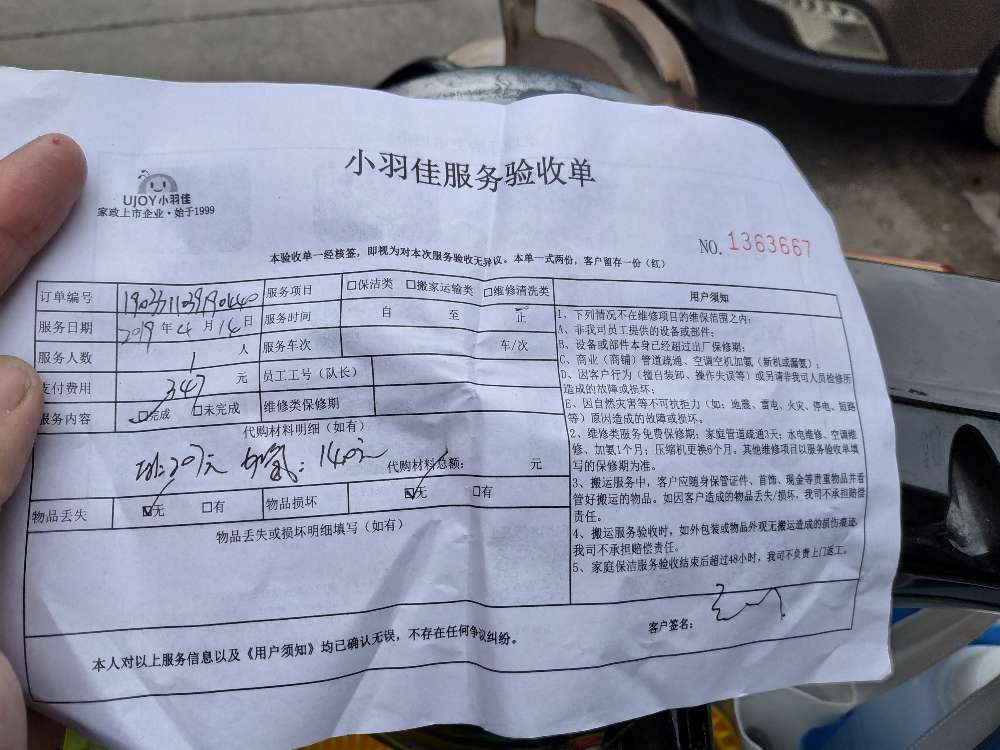 小羽佳服务验收单
UJOY小羽佳
家政上市企业·始于1999
NO. 1363667
本验收单一经核签，即视为对本次服务验收无异议。本单一式两份，客户留存一份（红）
订单编号
服务项目 □保洁类 □搬家运输类 □维修清洗类
服务日期 2019年4月14日 服务时间 自 至 止
服务人数 1 人 服务车次 车/次
支付费用 347 元 员工工号（队长）
服务内容 ☑完成 □未完成 维修类保修期
代购材料明细（如有）
207元 加氨：140元 代购材料总额： 元
物品丢失 ☑无 □有 物品损坏 ☑无 □有
物品丢失或损坏明细填写（如有）
用户须知
1、下列情况不在维修项目的维保范围之内：
A、非我司员工提供的设备或部件；
B、设备或部件本身已经超过出厂保修期；
C、商业（商铺）管道疏通、空调空机加氨（新机或漏氨）；
D、因客户行为（擅自装卸、操作失误等）或另请非我司人员检修所
造成的故障或损坏；
E、因自然灾害等不可抗拒力（如：地震、雷电、火灾、停电、短路
等）原因造成的故障或损坏。
2、维修类服务免费保修期：家庭管道疏通3天；水电维修、空调维
修、加氨1个月；压缩机更换6个月。其他维修项目以服务验收单填
写的保修期为准。
3、搬运服务中，客户应随身保管证件、首饰、现金等贵重物品并看
管好搬运的物品。如因客户造成的物品丢失/损坏，我司不承担赔偿
责任。
4、搬运服务验收时，如外包装或物品外观无搬运造成的损伤痕迹，
我司不承担赔偿责任。
5、家庭保洁服务验收结束后超过48小时，我司不负责上门返工。
客户签名：
本人对以上服务信息以及《用户须知》均已确认无误，不存在任何争议纠纷。